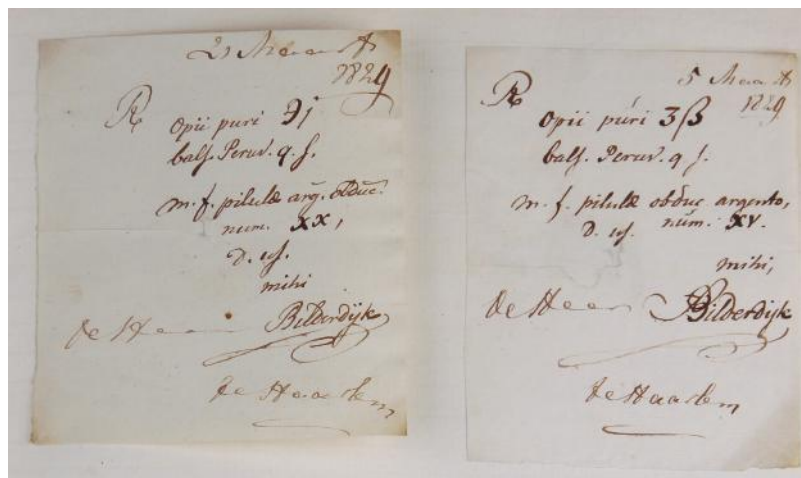 21 Maart
1829
R
Opii puri ℈j
balſ. Peruv. q. ſ.
m. f. pilulæ arg. obduc.
num. XX,
D. uſ.
mihi
de Heer Bilderdijk
te Haarlem
5 Maart
1829
R
Opii puri ʒß
balſ. Peruv. q ſ.
m. f. pilulæ obduc argento,
D. uſ. num. XV.
mihi,
de Heer Bilderdijk
te Haarlem